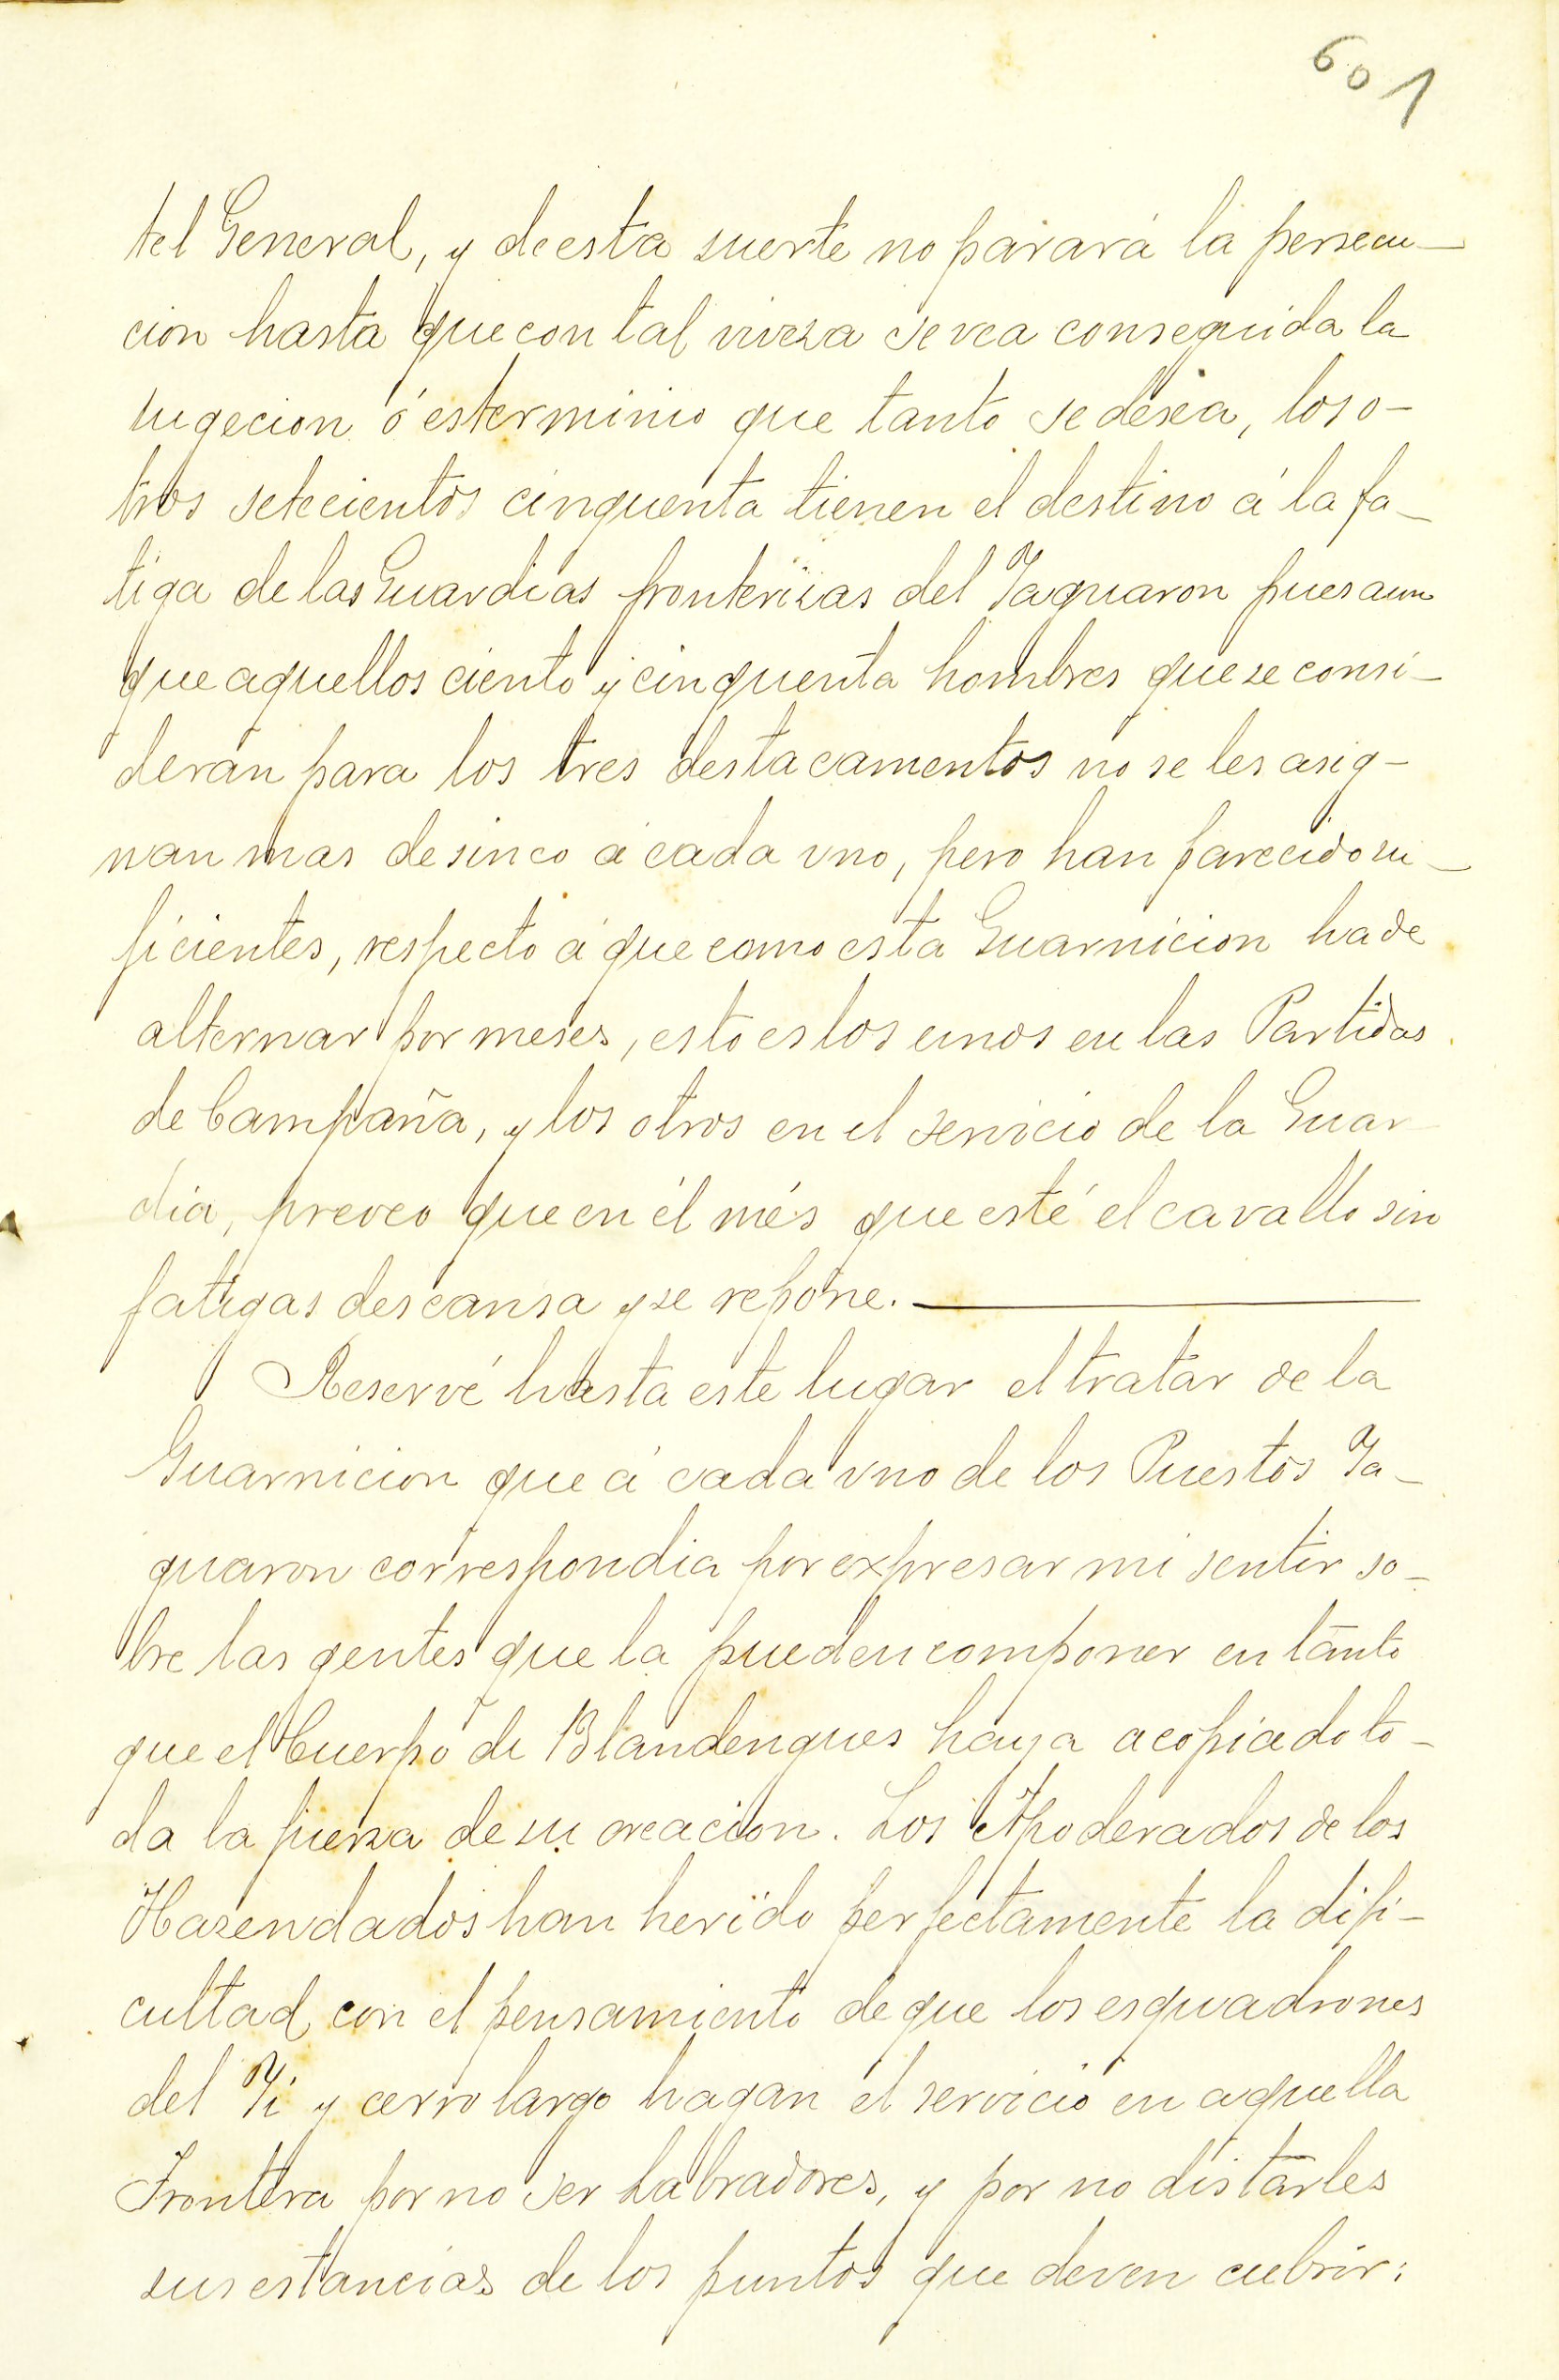 601
tel General, y de esta suerte no parará la persecu-
cion hasta que con tal viveza se vea conseguida la
sugecion ó esterminio que tanto se desea, los o-
tros setecientos cinquenta tienen el destino á la fa-
tiga de las Guardias fronterizas del Yaguaron pues aun
que aquellos ciento y cinquenta hombres que se consi-
deran para los tres destacamentos no se les asig-
nan mas de sinco á cada uno, pero han parecido su-
ficientes, respecto á que como esta Guarnicion ha de
alternar por meses, esto es los unos en las Partidas
de Campaña, y los otros en el servicio de la Guar
dia, preveo que en él més que esté el cavallo sin
fatigas descansa y se repone.
Reservé hasta este lugar el tratar de la
Guarnicion que á cada uno de los Puestos Ya-
guaron correspondia por expresar mi sentir so-
bre las gentes que la pueden componer en tanto
que el Cuerpo de Blandengues haya acopiado to-
da la fuerza de su creacion. Los Apoderados de los
Hazendados han herido perfectamente la difi-
cultad con el pensamiento de que los esquadrones
del Yi y cerro largo hagan el servicio en aquella
Frontera por no ser Labradores, y por no distarles
sus estancias de los puntos que deven cubrir: